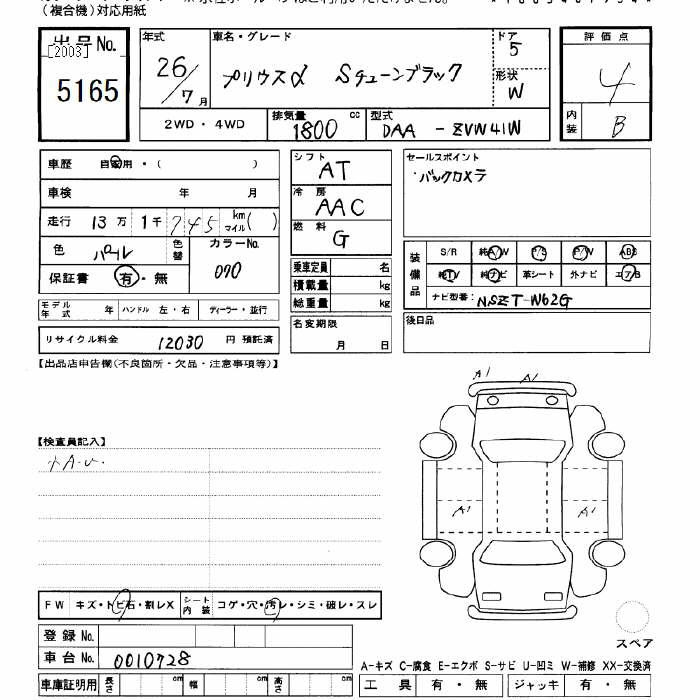 （複合機）対応用紙
出品No.
[2003]
5165
年式
26/7月
車名・グレード
プリウスα Sチューンブラック
ドア
5
形状
W
評価点
4
内装
B
2WD・4WD
排気量
1800 cc
型式
DAA - ZVW41W
車歴 自家用・（ ）
車検 年 月
走行 13万1千745 km マイル( )
色 パール
色替
カラーNo.
070
保証書 有・無
シフト
AT
冷房
AAC
燃料
G
乗車定員 名
積載量 kg
総重量 kg
セールスポイント
・バックカメラ
装備品
S/R 純A/W P/S P/W ABS
純TV 純ナビ 革シート 外ナビ エアB
ナビ型番: NSZT-W62G
モデル年式 年 ハンドル 左・右 ディーラー・並行
リサイクル料金 12030 円 預託済
名変期限
月 日
後日品
【出品店申告欄(不良箇所・欠品・注意事項等)】
A1 A1
【検査員記入】
A1 A1
FW キズ・トビ石・割レX シート内装 コゲ・穴・汚レ・シミ・破レ・スレ
登録No.
車台No. 0010728
スペア
A-キズ C-腐食 E-エクボ S-サビ U-凹ミ W-補修 XX-交換済
車庫証明用 長さ cm 幅 cm 高さ cm
工具 有・無 ジャッキ 有・無